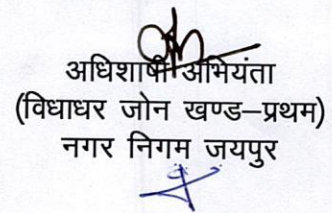 अधिशाषी अभियंता
(विधाधर जोन खण्ड–प्रथम)
नगर निगम जयपुर